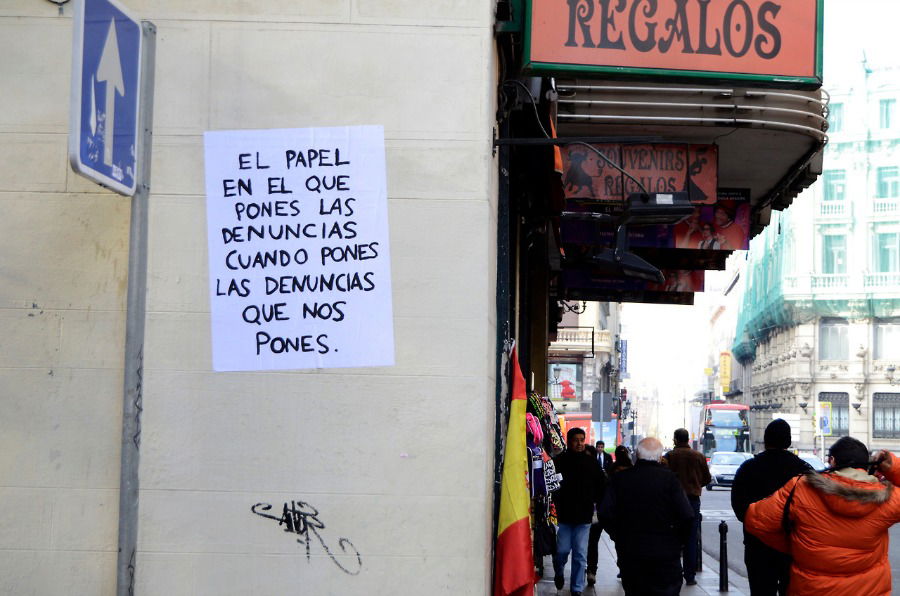 REGALOS
SOUVENIRS
REGALOS
EL PAPEL
EN EL QUE
PONES LAS
DENUNCIAS
CUANDO PONES
LAS DENUNCIAS
QUE NOS
PONES.